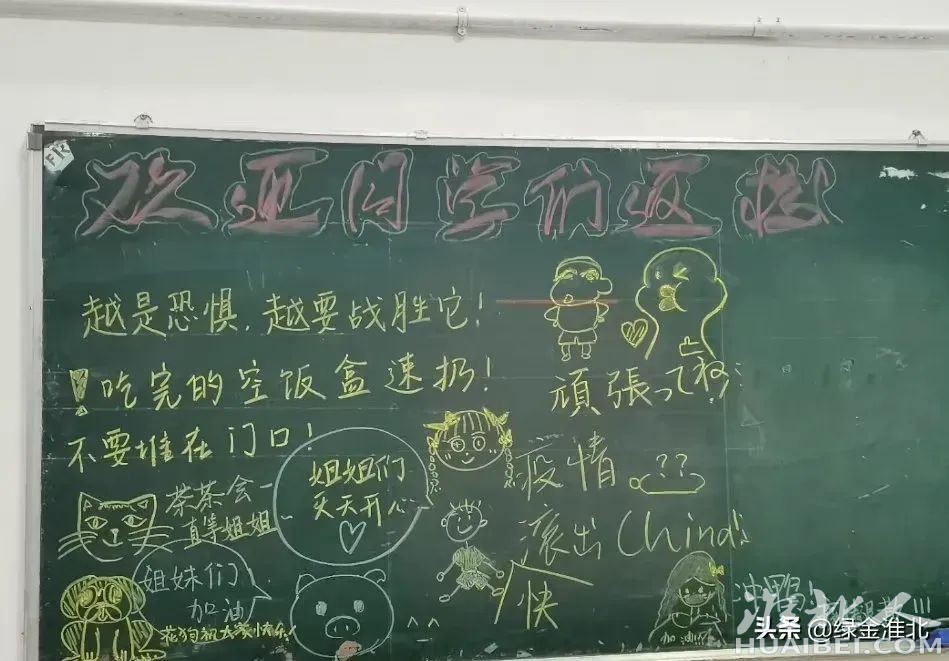 欢迎同学们返校
越是恐惧,越要战胜它!
!吃完的空饭盒速扔!
不要堆在门口!
頑張ってね
姐姐们
天天开心
茶茶会一
直等姐姐
疫情
??
滚出China!
快
姐妹们
加油
花狗祝大家快乐!
^^
加油
冲鸭!
淮北人
HUAIBEI.COM
头条 @绿金淮北